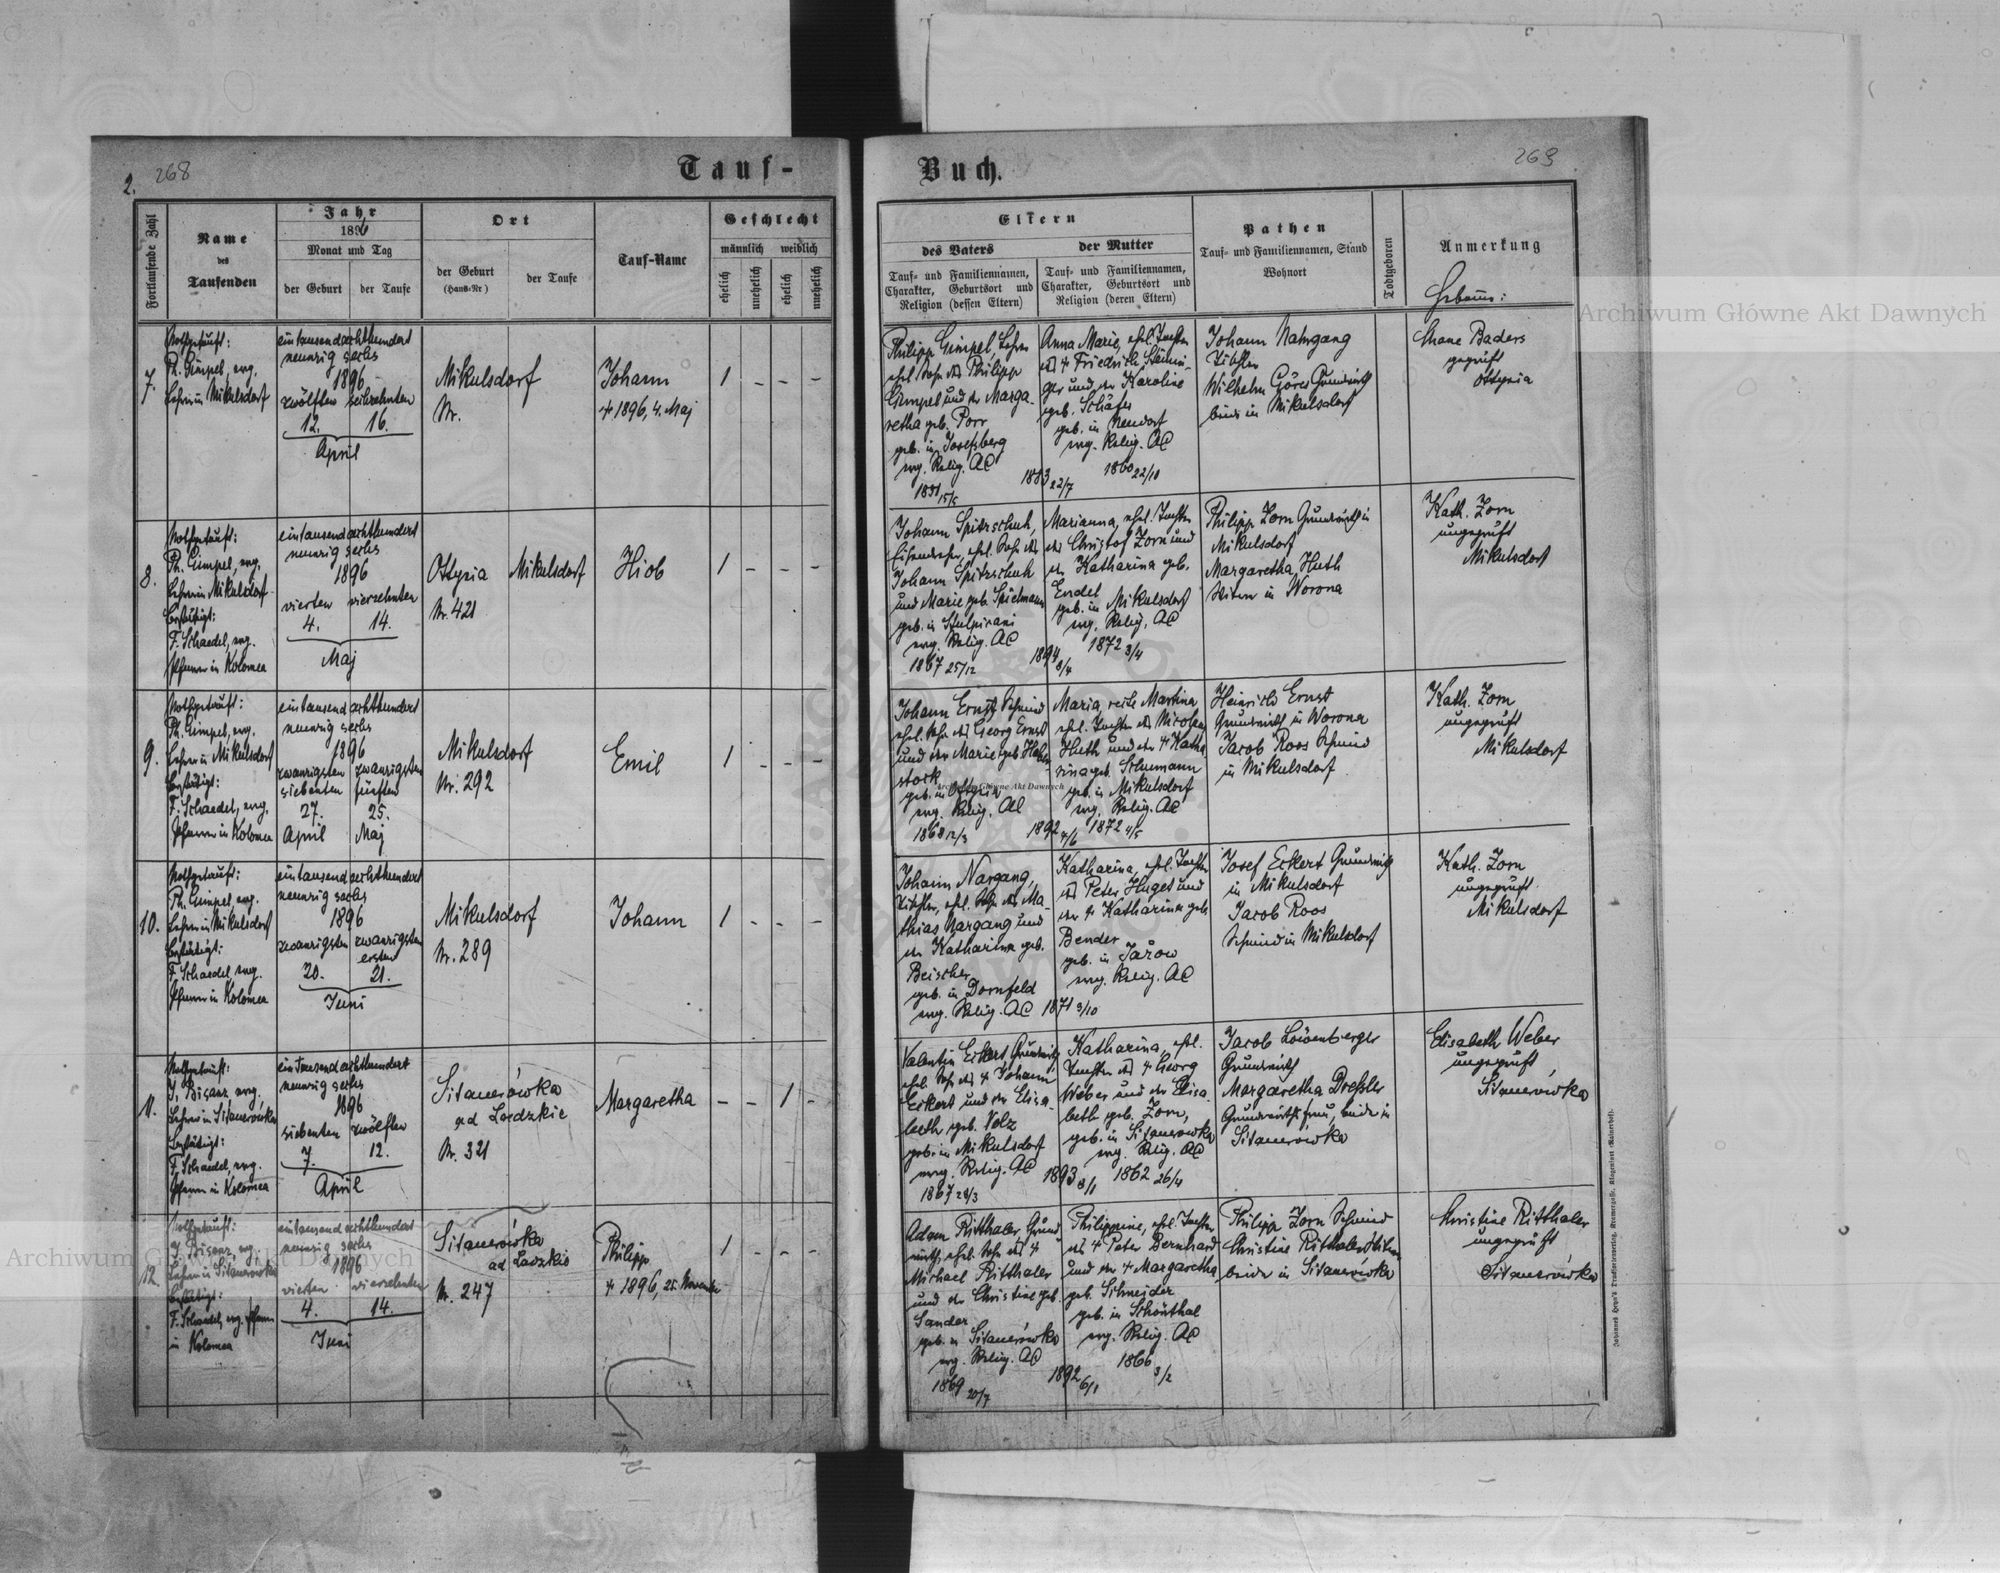 2. 268
Tauf-
Buch.
269
Fortlaufende Zahl
Name
des
Taufenden
Jahr
1896
Monat und Tag
der Geburt
der Taufe
Ort
der Geburt
(Haus-Nr)
der Taufe
Tauf-Name
Geschlecht
männlich weiblich
ehelich
unehelich
ehelich
unehelich
Eltern
des Vaters
Tauf- und Familiennamen,
Charakter, Geburtsort und
Religion (dessen Eltern)
der Mutter
Tauf- und Familiennamen,
Charakter, Geburtsort und
Religion (deren Eltern)
Pathen
Tauf- und Familiennamen, Stand
Wohnort
Todtgeboren
Anmerkung
7.
Nothgetauft:
Ph. Gimpel, evg.
Lehrer in Mikulsdorf
eintausendachthundert
neunzig sechs
1896
zwölften sechzehnten
12. 16.
April
Mikulsdorf
Nr.
Johann
+ 1896, 4. Maj
1 - - -
Philipp Gimpel, Lehrer
ehel. Sohn des Philipp
Gimpel und der Marga-
retha geb. Porr
geb. in Josefsberg
evg. Relig. AC
15/5
1883 22/7
Anna Marie, ehel. Tochter
des + Friedrich
und der Karoline
geb. Schäfer
geb. in Neudorf
evg. Relig. AC
1860 22/10
Johann Nahrgang
Wilhelm Göres Grundwirth
beide in Mikulsdorf
Baders
geprüft
Ottynia
8.
Nothgetauft:
Ph. Gimpel, evg.
Lehrer in Mikulsdorf
bestätigt:
F. Schaedel, evg.
Pfarrer in Kolomea
eintausendachthundert
neunzig sechs
1896
vierten vierzehnten
4. 14.
Maj
Ottynia
Nr. 421
Mikulsdorf
Hiob
1 - - -
Johann Spitzschuh,
Eisendreher, ehel. Sohn des
Johann Spitzschuh
und Marie geb. Spielmann
geb. in
evg. Relig. AC
1867 25/12
1894 8/4
Marianna, ehel. Tochter
des Christof Zorn und
der Katharina geb.
Endel
geb. in Mikulsdorf
evg. Relig. AC
1872 3/4
Philipp Zorn Grundwirth in
Mikulsdorf
Margaretha Huth
in Worona
Kath. Zorn
ungeprüft
Mikulsdorf
9.
Nothgetauft:
Ph. Gimpel, evg.
Lehrer in Mikulsdorf
bestätigt:
F. Schaedel, evg.
Pfarrer in Kolomea
eintausendachthundert
neunzig sechs
1896
zwanzigsten zwanzigsten
siebenten fünften
27. 25.
April Maj
Mikulsdorf
Nr. 292
Emil
1 - - -
Johann Ernst Schmid
ehel. Sohn des Georg Ernst
und der Marie geb. Haber-
stock
geb. in Ottynia
evg. Relig. AC
1868 12/3
1892
Maria, recte Martina
ehel. Tochter des Nicolaus
Huth und der + Katha-
rina geb. Schumann
geb. in Mikulsdorf
evg. Relig. AC
1872 4/5
Heinrich Ernst
Grundwirth in Worona
Jacob Roos Schmid
in Mikulsdorf
Kath. Zorn
ungeprüft
Mikulsdorf
10.
Nothgetauft:
Ph. Gimpel, evg.
Lehrer in Mikulsdorf
bestätigt:
F. Schaedel, evg.
Pfarrer in Kolomea
eintausendachthundert
neunzig sechs
1896
zwanzigsten zwanzigsten
ersten
20. 21.
Juni
Mikulsdorf
Nr. 289
Johann
1 - - -
Johann Nargang,
ehel. Sohn des Ma-
thias Nargang und
der Katharina geb.
Beischer
geb. in Dornfeld
evg. Relig. AC
Katharina, ehel. Tochter
des Peter Huget und
der + Katharina geb.
Bender
geb. in Jarow
evg. Relig. AC
1871 3/10
Josef Eckert Grundwirth
in Mikulsdorf
Jacob Roos
Schmid in Mikulsdorf
Kath. Zorn
ungeprüft
Mikulsdorf
11.
Nothgetauft:
J. Bisanz, evg.
Lehrer in Sitauerówka
bestätigt:
F. Schaedel, evg.
Pfarrer in Kolomea
eintausendachthundert
neunzig sechs
1896
siebenten zwölften
7. 12.
April
Sitauerówka
ad Ladzkie
Nr. 321
Margaretha
- - 1 -
Valentin Eckert Grundwirth
ehel. Sohn des + Johann
Eckert und der Elisa-
beth geb. Volz
geb. in Mikulsdorf
evg. Relig. AC
1867 28/3
1893 8/1
Katharina, ehel.
Tochter des + Georg
Weber und der Elisa-
beth geb. Zorn,
geb. in Sitauerowka
evg. Relig. AC
1862 26/4
Jacob Löwenberger
Grundwirth
Margaretha Dreßler
Grundwirthsfrau, beide in
Sitauerówka
Elisabeth Weber
ungeprüft
Sitauerówka
12.
Nothgetauft:
J. Bisanz, evg.
Lehrer in Sitauerowka
bestätigt:
F. Schaedel, evg. Pfarrer
in Kolomea
eintausendachthundert
neunzig sechs
1896
vierten vierzehnten
4. 14.
Juni
Sitauerówka
ad Ladzkie
Nr. 247
Philipp
+ 1896, 25. November
1 - - -
Adam Ritthaler, Grund-
wirth, ehel. Sohn des +
Michael Ritthaler
und der Christine geb.
Sander
geb. in Sitauerówka
evg. Relig. AC
1869 20/7
1892 6/1
Philippine, ehel. Tochter
des + Peter Bernhard
und der + Margaretha
geb. Schneider
geb. in Schönthal
evg. Relig. AC
1866 3/2
Philipp Zorn Schmid
Christine Ritthaler
beide in Sitauerówka
Christine Ritthaler
ungeprüft
Sitauerówka
Archiwum Główne Akt Dawnych
Archiwum Główne Akt Dawnych
Archiwum Główne Akt Dawnych